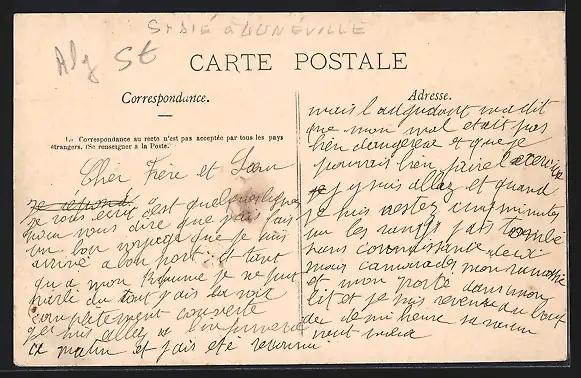 St DIÉ à LUNÉVILLE
Alg St
CARTE POSTALE
Correspondance.
La Correspondance au recto n'est pas acceptée par tous les pays
étrangers. (Se renseigner à la Poste.)
Cher Frère et Sœur
je répond
je vous écrit c'est quelques lignes
pour vous dire que j'ais fais
un bon voyage que je suis
arrivé a bon port et tant
qu'a mon Rhume je ne put
parlé du tout j'ais la voit
complètement couverte
je suis allez a l'infirmerie
ce matin et j'ais été reconnu
Adresse.
mais l'adjudant ma dit
que mon mal était pas
bien dangereux et que je
pouvais bien faire l'exercice
j'y suis allez et quand
je suis restez cinq minutes
sur les rangs j'ais tombé
sans connaissance deux
mais camarades mon ramassé
et mon porté dans mon
lit et je suis revenu au bout
de demi heure sa reven
veut mieux